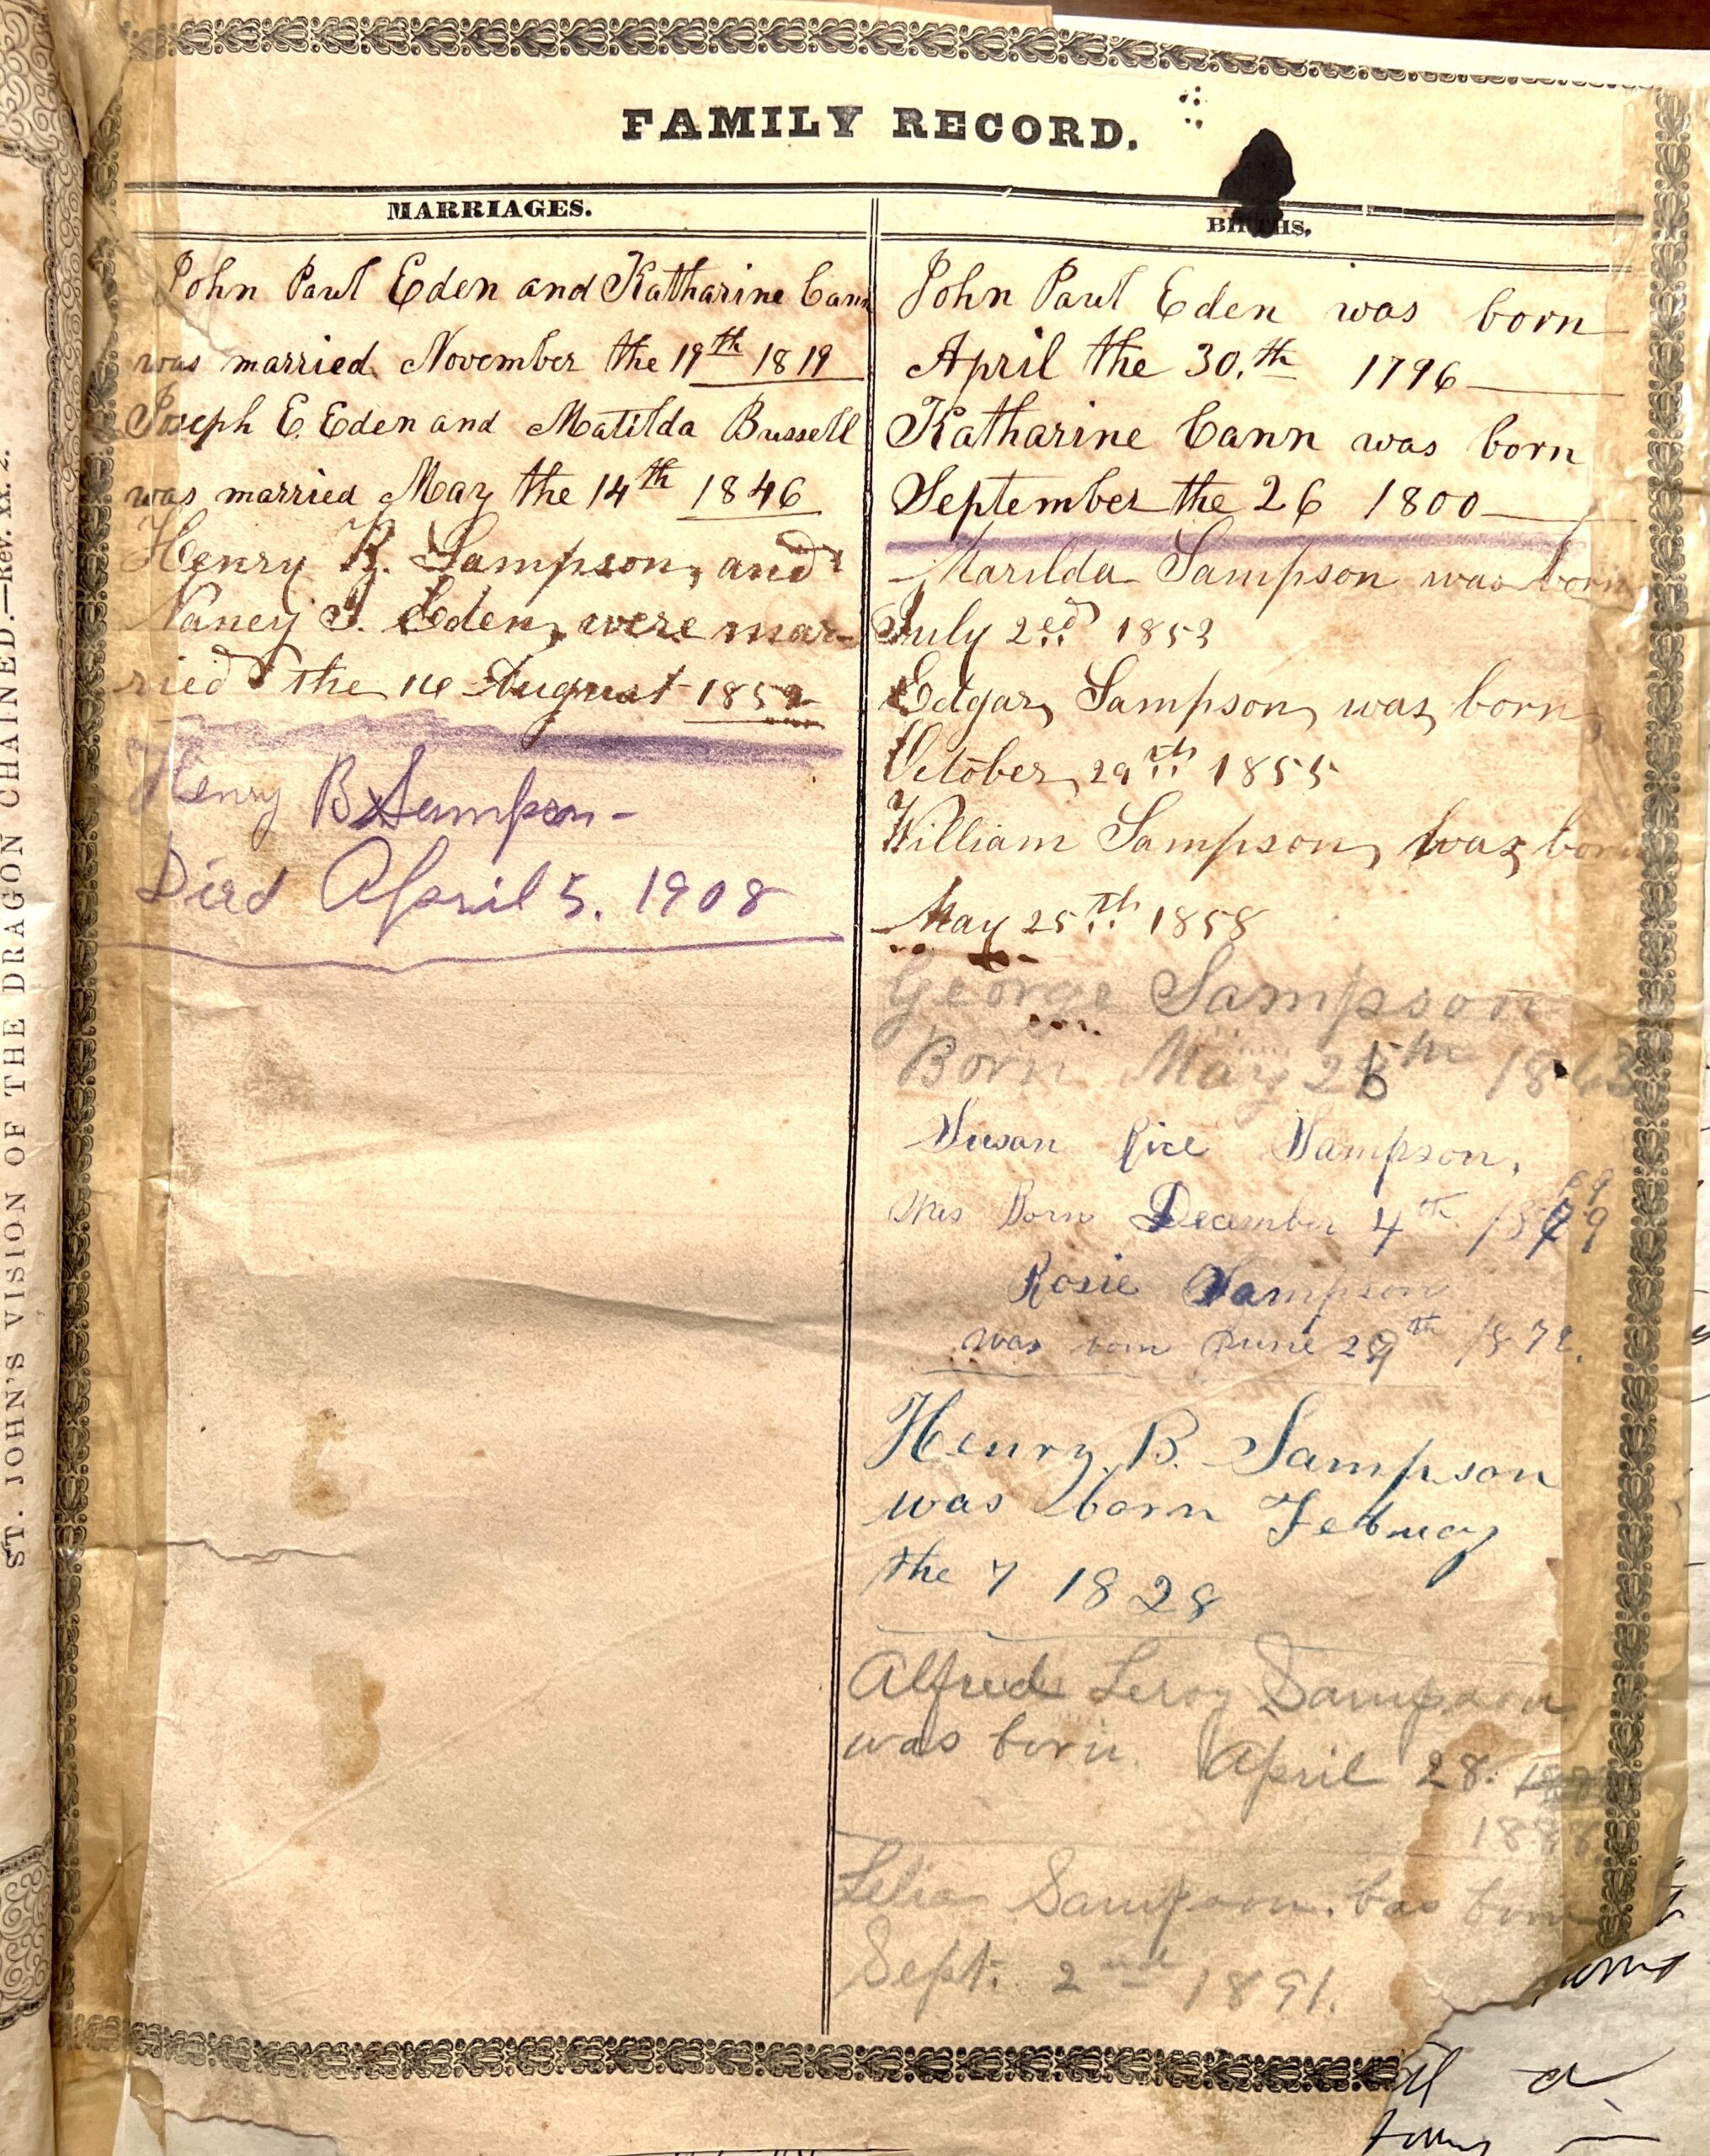 FAMILY RECORD.
MARRIAGES.
John Paul Eden and Katharine Cann
was married November the 19th 1819
Joseph E. Eden and Matilda Bussell
was married May the 14th 1846
Henry B. Sampson, and
Nancy J. Eden, were mar-
ried the 10 August 1852
Henry B Sampson-
Died April 5. 1908
BIRTHS.
John Paul Eden was born
April the 30.th 1796
Katharine Cann was born
September the 26 1800
Marilda Sampson was born
July 2ed 1853
Edgar, Sampson, was, born,
October, 29th 1855
William Sampson, was, born
May 25Th 1858
George Sampson
Born May 26th 1863
Susan Rice Sampson,
was Born December 4th 1869
Rosie Sampson
was born June 29th 1872.
Henry. B. Sampson
was born Febuay
the 7 1828
Alfred Leroy Sampson
was born. April 28.
1888.
Lelia Sampson. was born
Sept. 2nd 1891.
ST. JOHN'S VISION OF THE DRAGON CHAINED.—Rev. xx. 2.